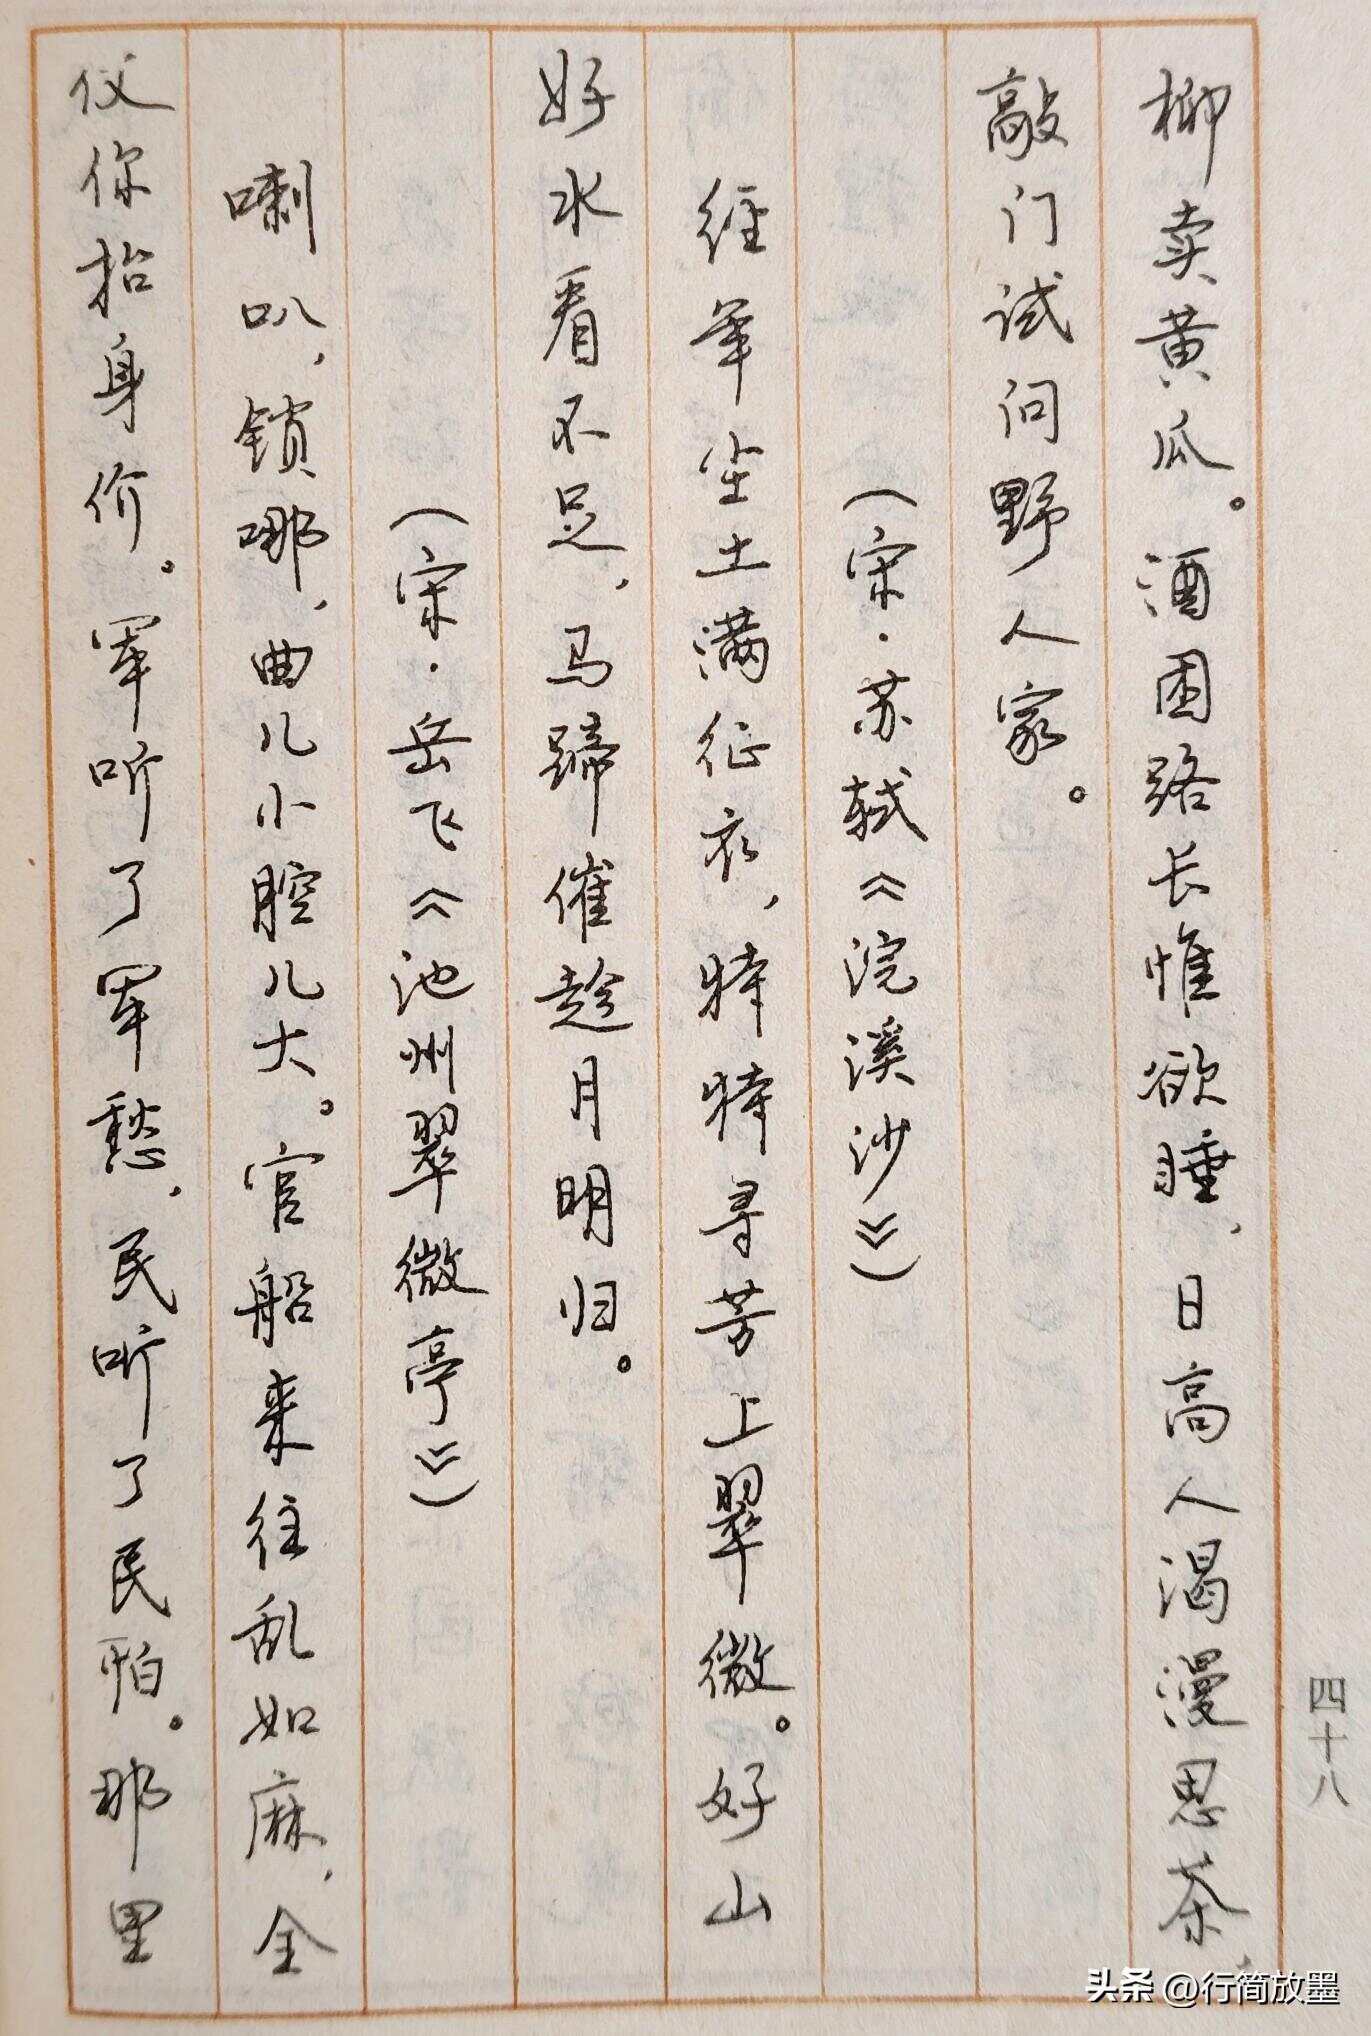 柳卖黄瓜。酒困路长惟欲睡，日高人渴漫思茶，
敲门试问野人家。
（宋·苏轼《浣溪沙》）
经年尘土满征衣，特特寻芳上翠微。好山
好水看不足，马蹄催趁月明归。
（宋·岳飞《池州翠微亭》）
喇叭，锁哪，曲儿小腔儿大。官船来往乱如麻，全
仗你抬身价。军听了军愁，民听了民怕。那里
四十八
头条 @行简放墨